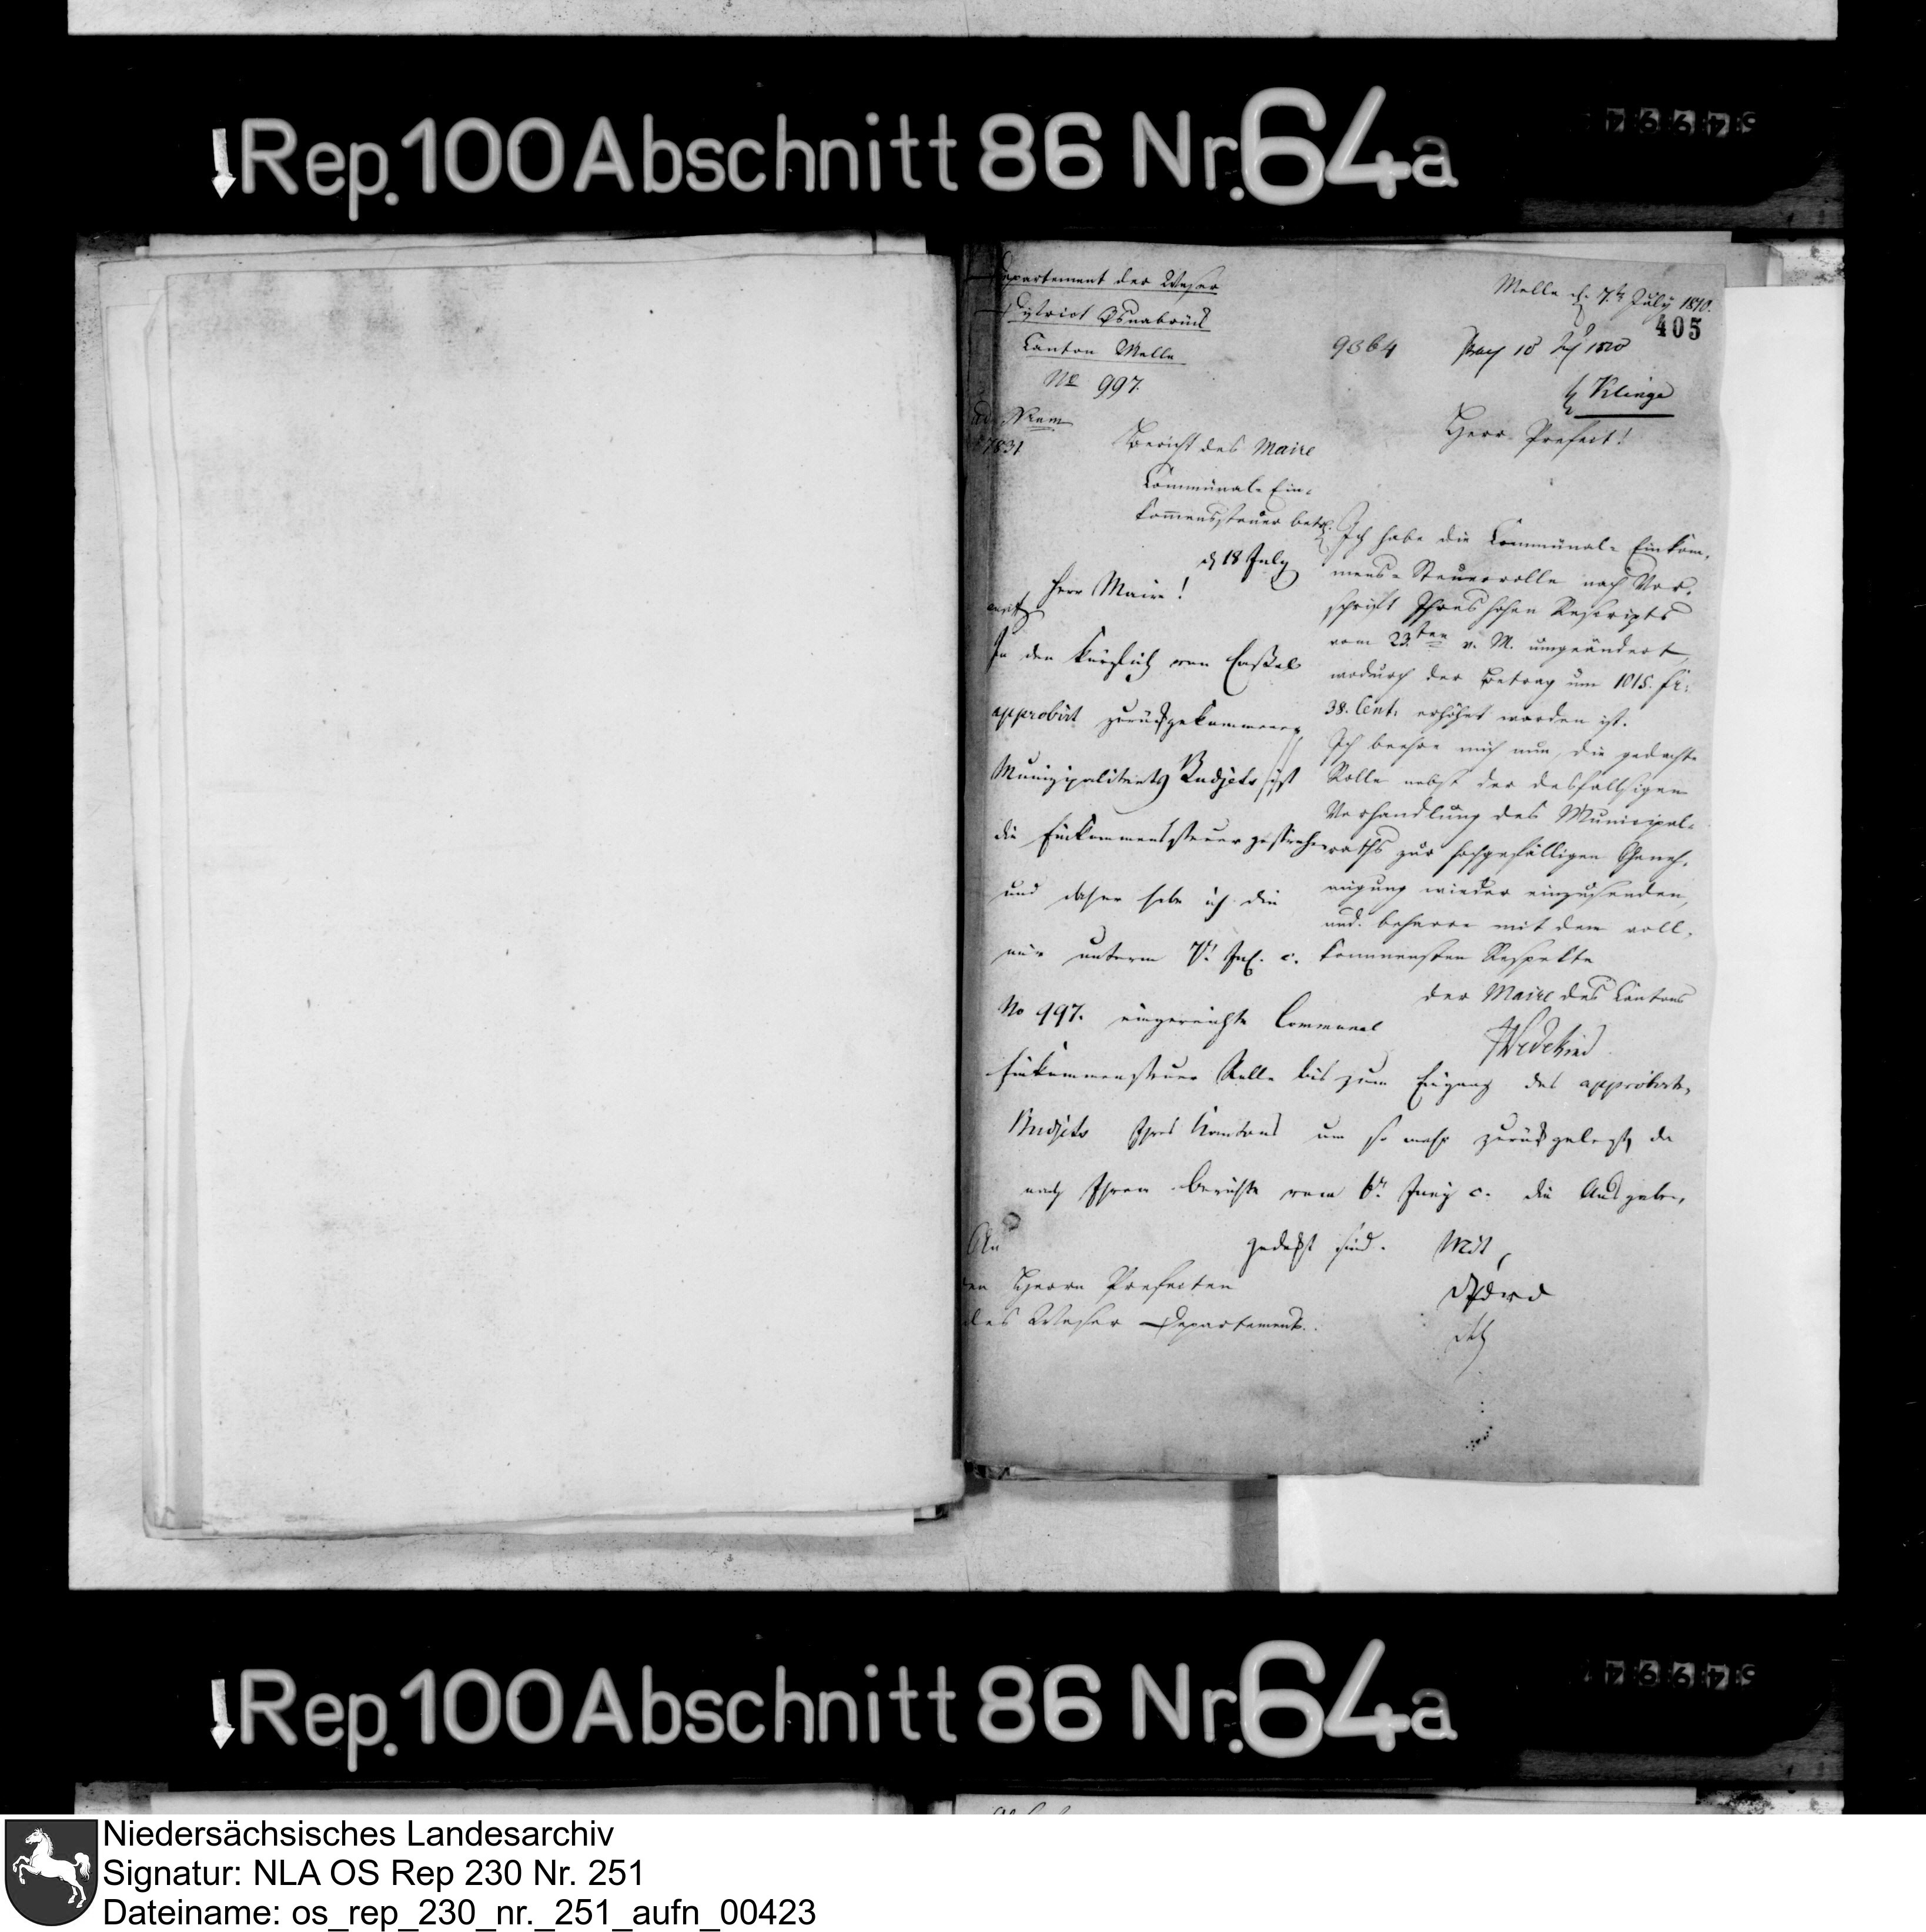 Rep. 100 Abschnitt 86 Nr. 64a
Departement der Weser
District Osnabrück
Canton Melle
No 997.
Melle d. 7t July 1810.
405
9864
Klinge
Num
7831
Bericht des Maire
Communal-Ein-
kom̄enssteuer betr.
Herr Prefect!
Ich habe die Communal-Einkom-
mens-Steuerrolle nach Vor-
schrift Ihres hohen Rescripts
vom 23ten v. M. umgeändert,
wodurch der Betrag um 1015. fr:
38. Cent: erhöhet worden ist.
Ich beehre mich nun, die gedachte
Rolle nebst der desfallsigen
Verhandlung des Municipal-
raths zur hochgefälligen Geneh-
migung wieder einzusenden,
und beharre mit dem voll-
kommensten Respekte
der Maire des Cantons
Wedekind
d 18 July
Herr Maire!
In den kürzlich von Cassel
approbirt zurückgekommenen
Munizipalitaets Budjets ist
die Einkommensteuer gestrichen
und daher habe ich die
mir unterm 7t Jul. c.
No 997. eingereichte Communal
Einkommensteuer Rolle bis zum Eingang des approbirten
Budjets Ihres Kantons um so mehr zurückgelegt, da
nach Ihrem Berichte vom 6t Juny c. die Ausgaben,
gedeckt sind. Mit
An
den Herrn Prefecten
des Weser Departements.
Rep. 100 Abschnitt 86 Nr. 64a
Niedersächsisches Landesarchiv
Signatur: NLA OS Rep 230 Nr. 251
Dateiname: os_rep_230_nr._251_aufn_00423